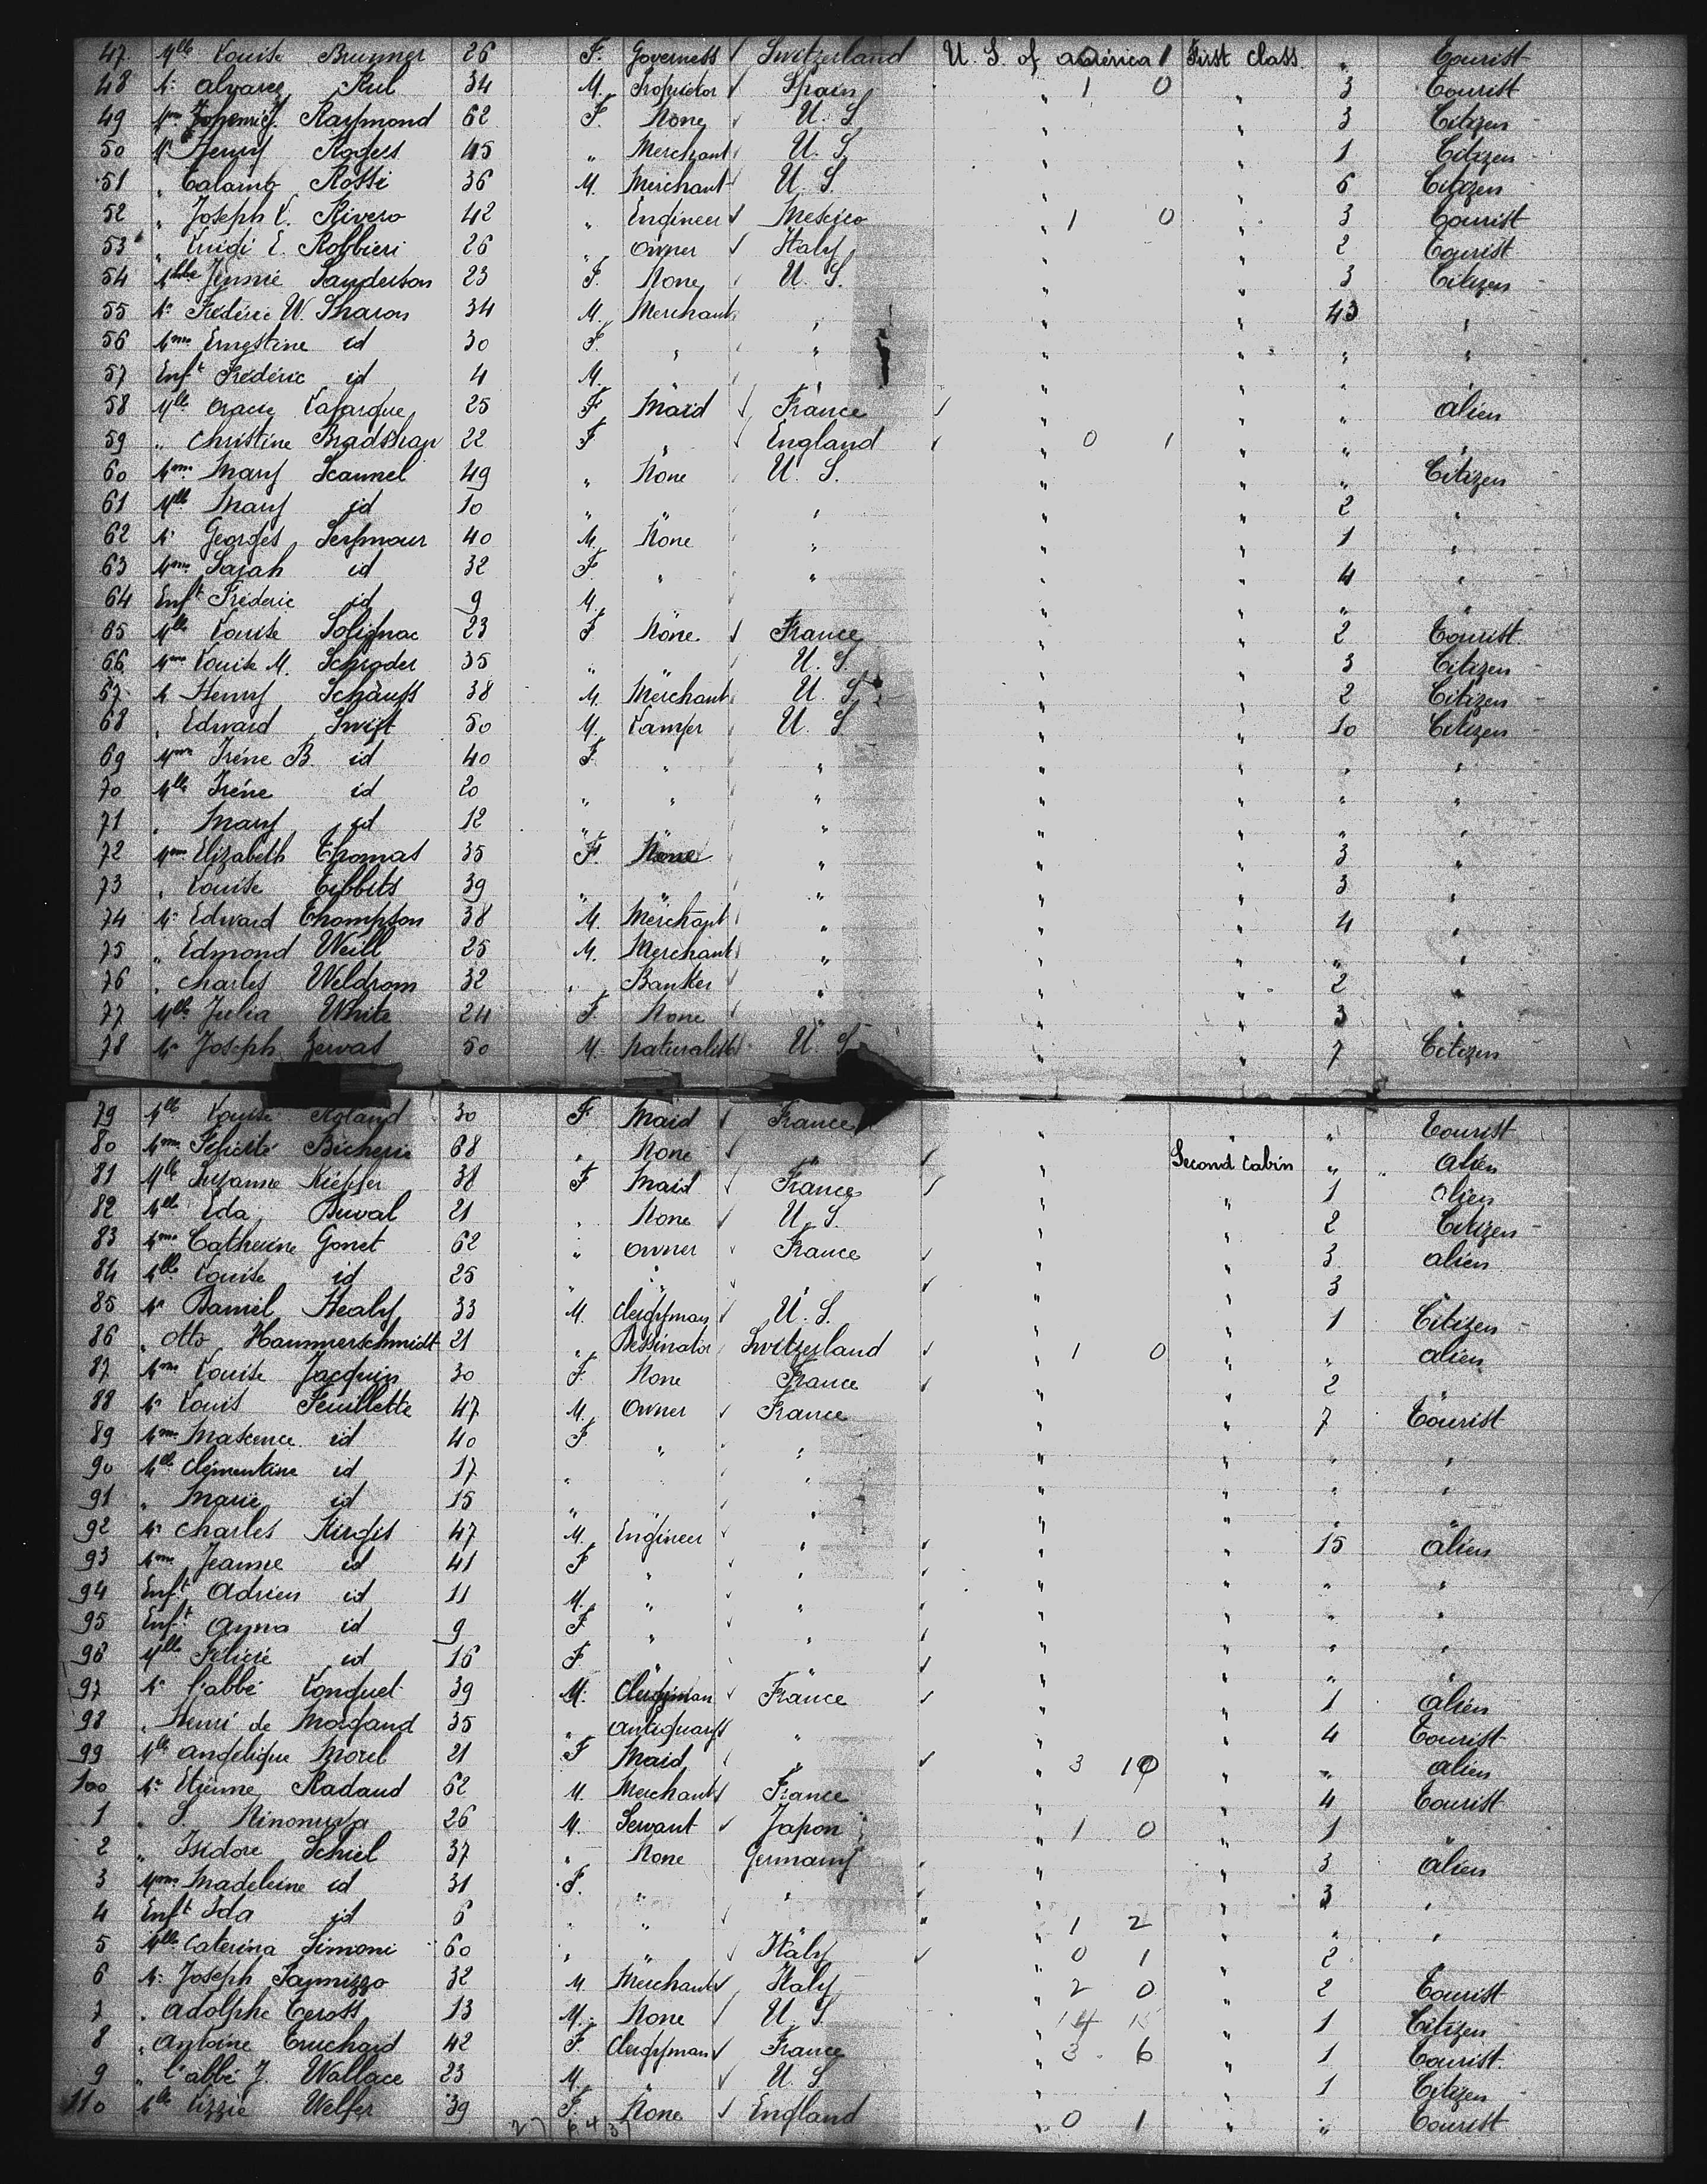 47 Mlle Louise Brunner 26 F. Governess √ Switzerland U. S. of america 1 First class " Tourist
48 Mr Alvarez 34 M. Proprietor √ Spain " 1 0 " 3 Tourist
49 Mme Raymond 62 F. None U. S " " 3 Citizen
50 Mr Henry Rogers 45 " Merchant U. S. " " 1 Citizen
51 " Rossi 36 M. Merchant U. S. " " 6 Citizen
52 " Joseph Rivero 42 " Engineer √ Mexico " 1 0 " 3 Tourist
53 " Luigi E. Robbieri 26 " Owner √ Italy " " 2 Tourist
54 Mlle Jennie Sanderson 23 F. None U. S. " " 3 Citizen
55 Mr Frédéric W. Sharon 34 M. Merchant " " " 43 "
56 Mme Ernestine id 30 F. " " " " " "
57 Enft Frédéric id 4 M. " " " " "
58 Mlle Lafargue 25 F Maid √ France √ " " " alien
59 " Christine Bradshaw 22 F " √ England √ " 0 1 " " "
60 Mme Mary Scannel 49 " None U. S. " " " Citizen
61 Mlle Mary id 10 " " " " " 2 "
62 Mr Georges Seymour 40 M. None " " " 1 "
63 Mme Sarah id 32 F. " " " " 4 "
64 Enft Fréderic id 9 M. " " " "
65 Mlle Louise Solignac 23 F None √ France " " 2 Tourist
66 Mme Louise M. Schroder 35 " " U. S. " " 3 Citizen
67 Mr Henry Schauss 38 M. Merchant U. S. " " 2 Citizen
68 " Edward Swift 50 M. U. S. " " 10 Citizen
69 Mme Irène B. id 40 F. " " " " " "
70 Mlle Irène id 20 " " " " " " "
71 " Mary id 12 " " " " " "
72 Mme Elizabeth Thomas 35 F. None " " " 3 "
73 " Louise Tibbits 39 " " " " " 3 "
74 Mr Edward Thompson 38 M. Merchant " " " 4 "
75 " Edmond Weill 25 M. Merchant " " " " "
76 " Charles Weldrom 32 " Banker " " " 2 "
77 Mlle Julia White 24 F. None " " " 3 "
78 Mr Joseph Zervas 50 M. Naturalist U. S " " 7 Citizen
79 Mlle Louise Roland 30 F Maid √ France " " " Tourist
80 Mme Félicité Bicherie 68 " None √ " √ " Second Cabin " alien
81 Mlle Suzanne Kiepfer 38 F Maid √ France √ " " 1 alien
82 Mlle Eda Duval 21 " None √ U. S. " " 2 Citizen
83 Mme Catherine Gonet 62 " Owner France √ " " 3 alien
84 Mlle Louise id 25 " " " √ " " 3 "
85 Mr Daniel Healy 33 M. Clergyman √ U. S. " " 1 Citizen
86 " Otto Hammerschmidt 21 " Dessinator Switzerland √ " 1 0 " " alien
87 Mme Louise Jacquin 30 F. None France √ " " 2 "
88 Mr Louis Feuillette 47 M. Owner √ France " " 7 Tourist
89 Mme id 40 F " " " " " "
90 Mlle Clémentine id 17 " " " " " "
91 " Marie id 15 " " " " " "
92 Mr Charles Kirgis 47 M. Engineer " √ " " 15 alien
93 Mme Jeanne id 41 F " " √ " " " "
94 Enft Adrien id 11 M. " " √ " " " "
95 Enft Anna id 9 F " " √ " " " "
96 Mlle Félicie id 16 F " " √ " " " "
97 Mr l'abbé Longuet 39 M. Clergyman √ France √ " " 1 alien
98 " Henri de Morgand 35 " Antiquary " " " 4 Tourist
99 Mlle Angélique Morel 21 F Maid √ " √ " 3 10 " " alien
100 Mr Etienne Radaud 62 M Merchant √ France " " 4 Tourist
1 " S. 26 M. Servant √ Japon " 1 0 " 1 "
2 " Isidore Schiel 37 " None Germany √ " " 3 alien
3 Mme Madeleine id 31 F. " " √ " " 3 "
4 Enft Ida id 6 " " √ " 1 2 " " "
5 Mlle Caterina Simoni 60 " " √ Italy √ " 0 1 " 2 "
6 Mr Joseph 32 M Merchant √ Italy " 2 0 " 2 Tourist
7 " Adolphe Teross 13 M. None √ U. S. " 14 15 " 1 Citizen
8 " Antoine Truchard 42 F. Clergyman √ France " 3 6 " 1 Tourist
9 " l'abbé J. Wallace 23 M. " √ U. S " " 1 Citizen
110 Mlle Lizzie Welfer 39 F. None √ England " 0 1 " " Tourist